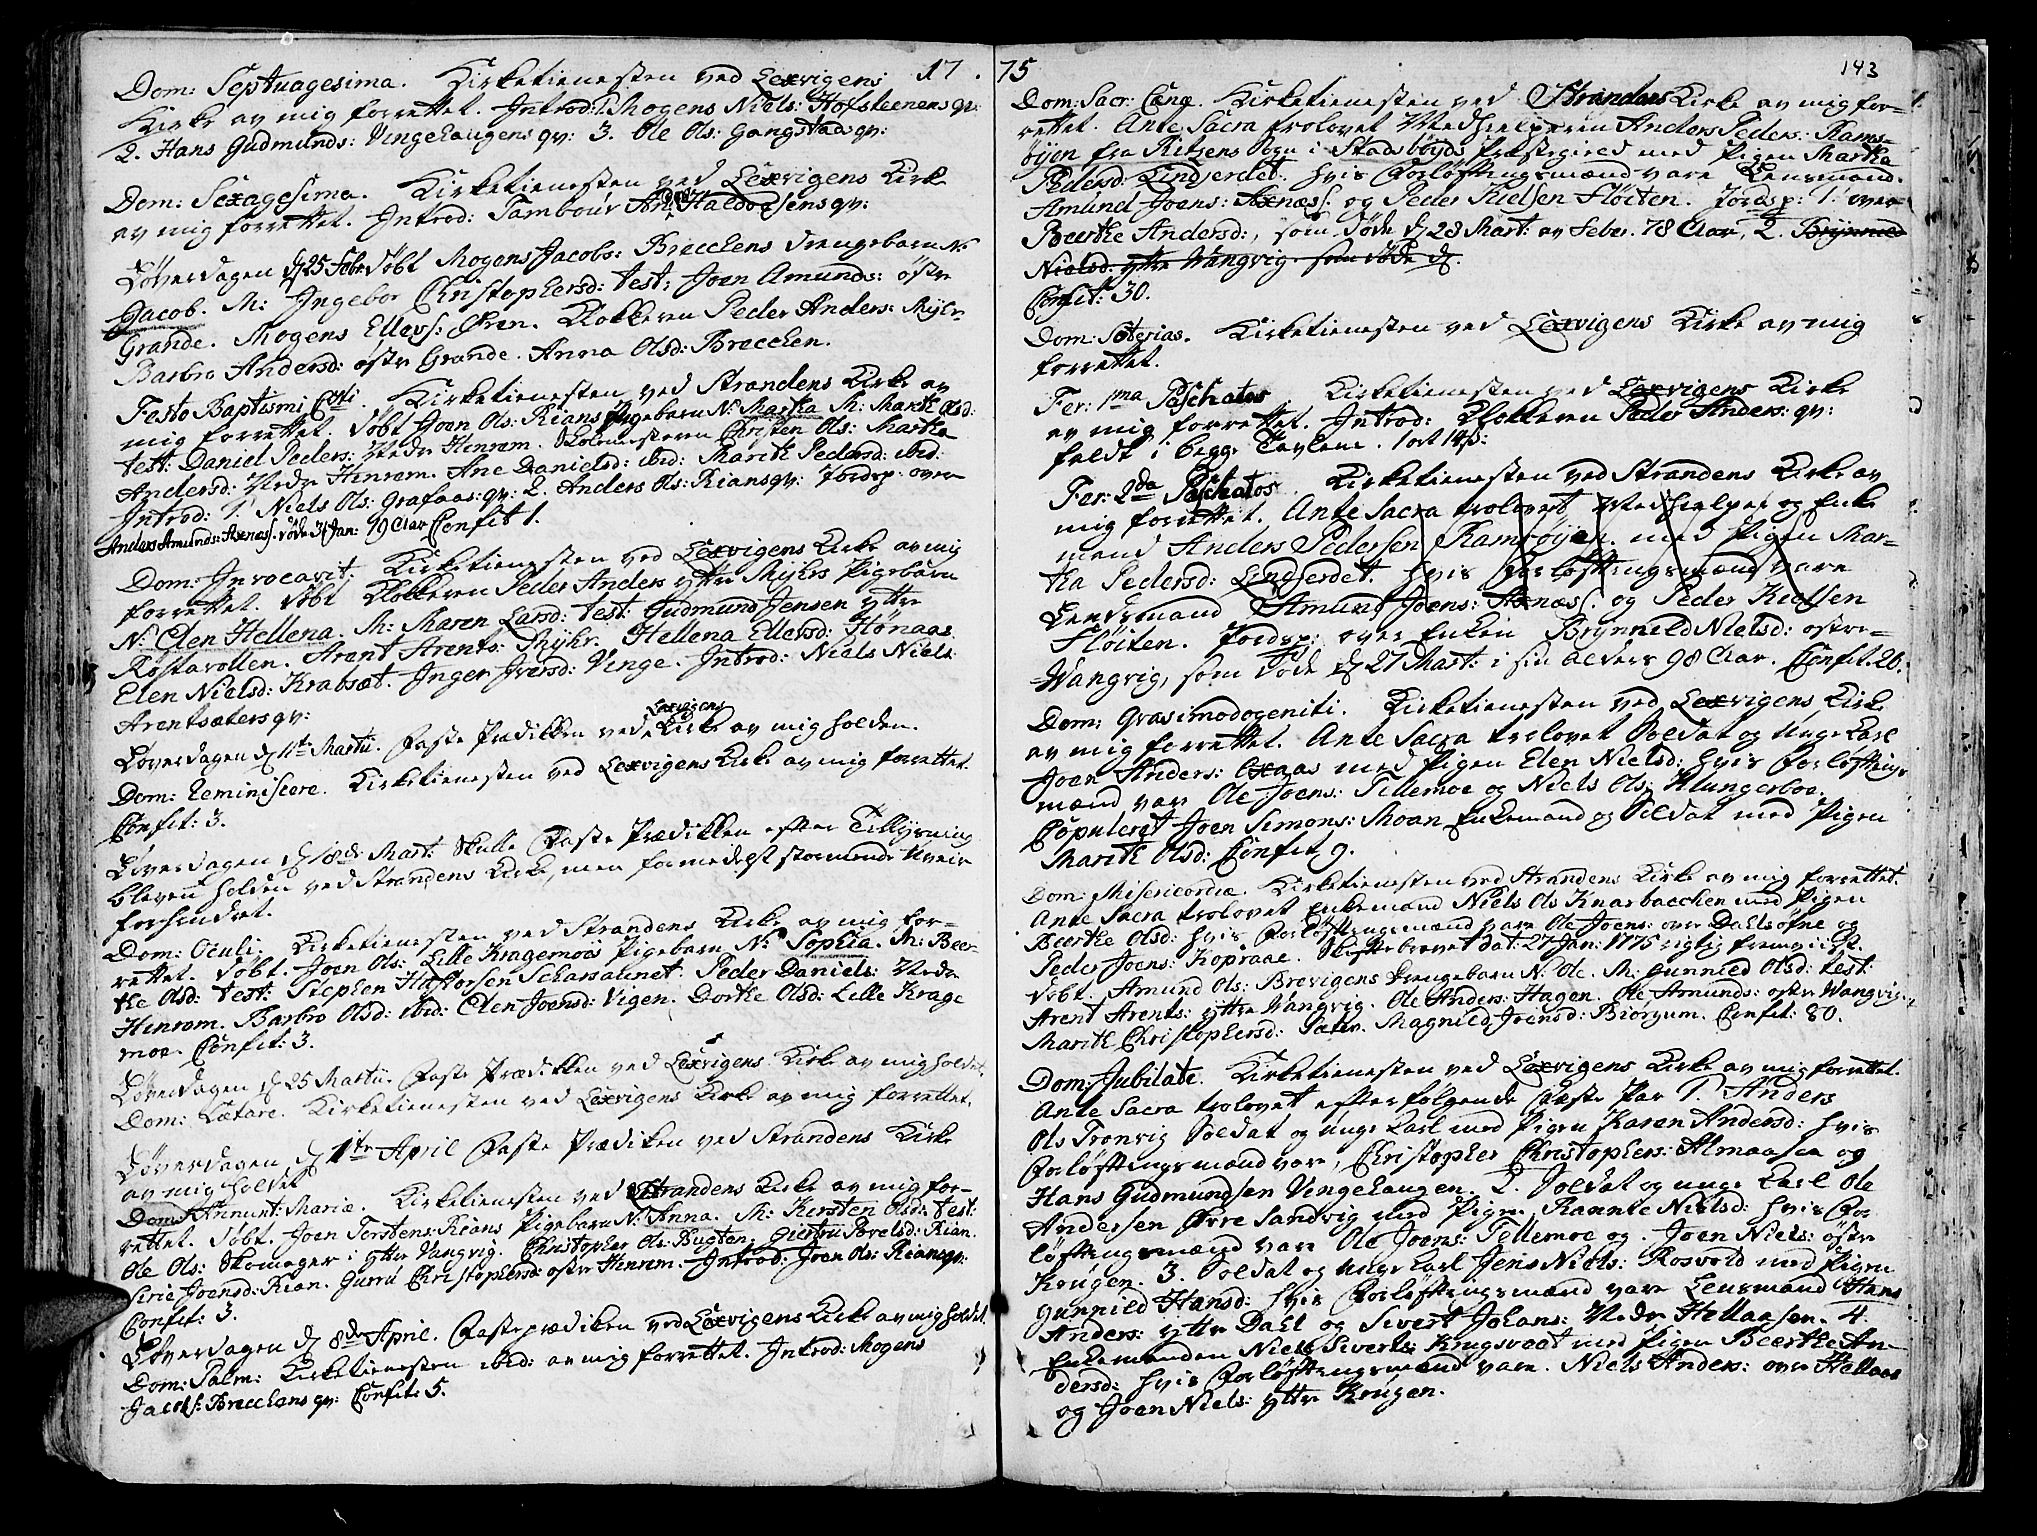 17
Dom: Septuagesima. Kirketienesten ved Lexvigens
Kirke av mig forrettet. Introd: 1. Mogens Niels: Hofsteenens qv:
2. Hans Gudmunds: Vingehaugens qv: 3. Ole Ols: Gangstads qv:
Dom: Sexagesima. Kirketienesten ved Lexvigens Kirke
av mig forrettet. Introd: Tambour And: Haldorsens qv:
Løverdagen d 25 Febr: døbt Mogens Jacobs: Brecchens drengebarn N:
Jacob. M: Ingebor Christophersd: test: Joen Amunds: østre
Grande. Mogens Ellevs: Øren. Klokkeren Peder Anders: Myhr
Barbro Andersd: østre Grande. Anna Olsd: Brecchen.
Festo Baptismi Xsti. Kirketienesten ved Strandens Kirke av
mig forrettet. døbt Joen Ols: Rians Pigebarn N: Martha M: Marith Olsd:
test: Daniel Peders: Nedre Henrem. Skolemesteren Christen Ols: Martha
Andersd: Nedre Henrem. Ane Danielsd: ibid: Marith Pedersd: ibid:
Introd: 1. Niels Ols: Grafaas: qv: 2. Anders Ols: Rians qv: Jordsp: over
Anders Amunds: Axnæs. døde 31 Jan: 79 Aar Confit 1.
Dom: Invocavit. Kirketienesten ved Lexvigens Kirke av mig
forrettet. døbt Klokkeren Peder Anders ytre Myhrs Pigebarn
N: Elen Hellena. M: Maren Larsd: test: Gudmund Jensen ytre
Røstavollen. Arent Arents: Myhr. Hellena Ellevsd: Hønaas.
Elen Nielsd: Krabsæt. Inger Iversd: Vinge. Introd: Niels Niels:
Arentsæters qv:
Løverdagen d 11te Martii. Faste Prædikken ved Lexvigens Kirke av mig holden.
Dom: Reminiscere. Kirketienesten ved Lexvigens Kirke av mig forrettet.
Confit: 3.
Løverdagen d 18de Mart: Skulle Faste Prædikken efter Tillysning
bleven holden ved Strandens Kirke, men formedelst stormende Uveir
forhindret.
Dom: Oculi. Kirketienesten ved Strandens Kirke av mig for-
rettet. døbt. Joen Ols: Lille Kragemoes Pigebarn N: Sophia. M: Beer-
the Olsd: test: Stephen Hastorsen Scharsaunet. Peder Daniels: Nedre
Henrem. Barbro Olsd: ibid: Elen Joensd: Vigen. Dorthe Olsd: Lille Krage
moe. Confit: 3.
Løverdagen d 25 Martii. Faste Prædikken ved Lexvigens Kirke av mig holdet.
Dom: Lætare. Kirketienesten ved Lexvigens Kirke av mig forrettet.
Løverdagen d 1te April Faste Prædiken ved Strandens Kirke
av mig holdet
Dom: Annunt: Mariæ. Kirketienesten ved Strandens Kirke av mig for-
rettet. døbt. Joen Torstens: Rians Pigebarn N: Anna. M: Kirsten Olsd: test:
Ole Ols: Skomager i ytre Vangvig. Christopher Ols: Bugten. Giertru Torelsd: Rian.
Sirie Joensd: Rian. Guru Christophersd: østre Henrem. Introd: Joen Ols: Rians qv:
Confit: 3.
Løverdagen d 8de April. Faste prædiken ved Lexvigens Kirke av mig holdet.
Dom: Palm: Kirketienesten ibid: av mig forrettet. Introd: Mogens
Jacobs: Brecchens qv: Confit: 5.
75
143
Dom: Sacr: Cæna. Kirketienesten ved Strandens Kirke av mig for-
rettet. Ante Sacra trolovet Medhielperen Anders Peders: Rams-
øyen fra Ritzens Sogn i Stadsboyds Præstegield med Pigen Martha
Pedersd: Lindserdet. hvis Forløftningsmænd vare Lensmand
Amund Joens: Axnæs. og Peder Kielsen Fløiten. Jordsp: 1. over
Beerthe Andersd:, som døde d 28 Mart: av Feber. 78 Aar, 2. Brynnild
Nielsd: ytre Vangvig. som døde d.
Confit: 30.
Dom: Soterias. Kirketienesten ved Lexvigens Kirke av mig
forrettet.
Fer: 1ma Paschatos. Kirketienesten ved Lexvigens Kirke
av mig forrettet. Introd: Klokkeren Peder Anders: qv:
faldt i begge Tavlene. 1 ort 14 s:
Fer: 2da Paschatos. Kirketienesten ved Strandens Kirke av
mig forrettet. Ante Sacra trolovet Medhielper og Enke
mand Anders Pedersen Ramsøyen. med Pigen Mar-
tha Pedersd: Lindserdet. hvis Forløftningsmænd vare
Lensmand Amund Joens: Axnæs. og Peder Kielsen
Fløiten. Jordsp: over Enken Brynnild Nielsd: østre-
Vangvig, som døde d 27 Mart: i sin alders 98 Aar. Confit. 26.
Dom: Qvasimodogeniti. Kirketienesten ved Lexvigens Kirke
av mig forrettet. Ante Sacra trolovet Soldat og Unge Karl
Joen Anders: Oxaas med Pigen Elen Nielsd: hvis Forløftnings
mænd vare Ole Joens: Tellemoe og Niels Ols: Klungerboe.
Copuleret Joen Simons: Moan Enkemand og Soldat med Pigen
Marith Olsd: Confit 9.
Dom: Misericordiæ. Kirketienesten ved Strandens Kirke av mig forrettet.
Ante Sacra trolovet Enkemand Niels Ols Knarbacchen med Pigen
Beerthe Olsd: hvis Forløftningsmænd vare Ole Joens: over Dahlsøfne og
Peder Joens: Kopraae. Skiftebrevet dat: 27 Jan: 1775 rigtig fremviist.
døbt. Amund Ols: Brevigens drengebarn N: Ole. M: Gunnild Olsd: test:
Arent Arents: ytre Vangvig. Ole Anders: Hagen. Ole Amunds: østre Vangvig.
Marith Christophersd: Sæter. Magnild Joensd: Biorgum. Confit: 80.
Dom: Jubilate. Kirketienesten ved Lexvigens Kirke av mig forrettet.
Ante Sacra trolovet efterfølgende Fæste Par 1. Anders
Ols Tronvig Soldat og Unge Karl med Pigen Karen Andersd: hvis
Forløftningsmænd vare, Christopher Christophers: Almaasen og
Hans Gudmundsen Vingehaugen. 2. Soldat og unge Karl Ole
Andersen Øvre Sandvig med Pigen Raannie Nielsd: hvis For
løftningsmænd vare Ole Joens: Tellemoe og Joen Niels: østre
Kougen. 3. Soldat og Unge Karl Jens Niels: Rosvold med Pigen
Gunnild Hansd: hvis Forløftningsmænd vare Lensmand Hans
Anders: ytre Dahl og Sivert Johans: Nedre Hellaasen. 4.
Enkemanden Niels Siverts: Krugsvoet med Pigen Beerthe An-
dersd: hvis Forløftningsmænd vare. Niels Anders: over Hellaas
og Joen Niels: ytre Kougen.